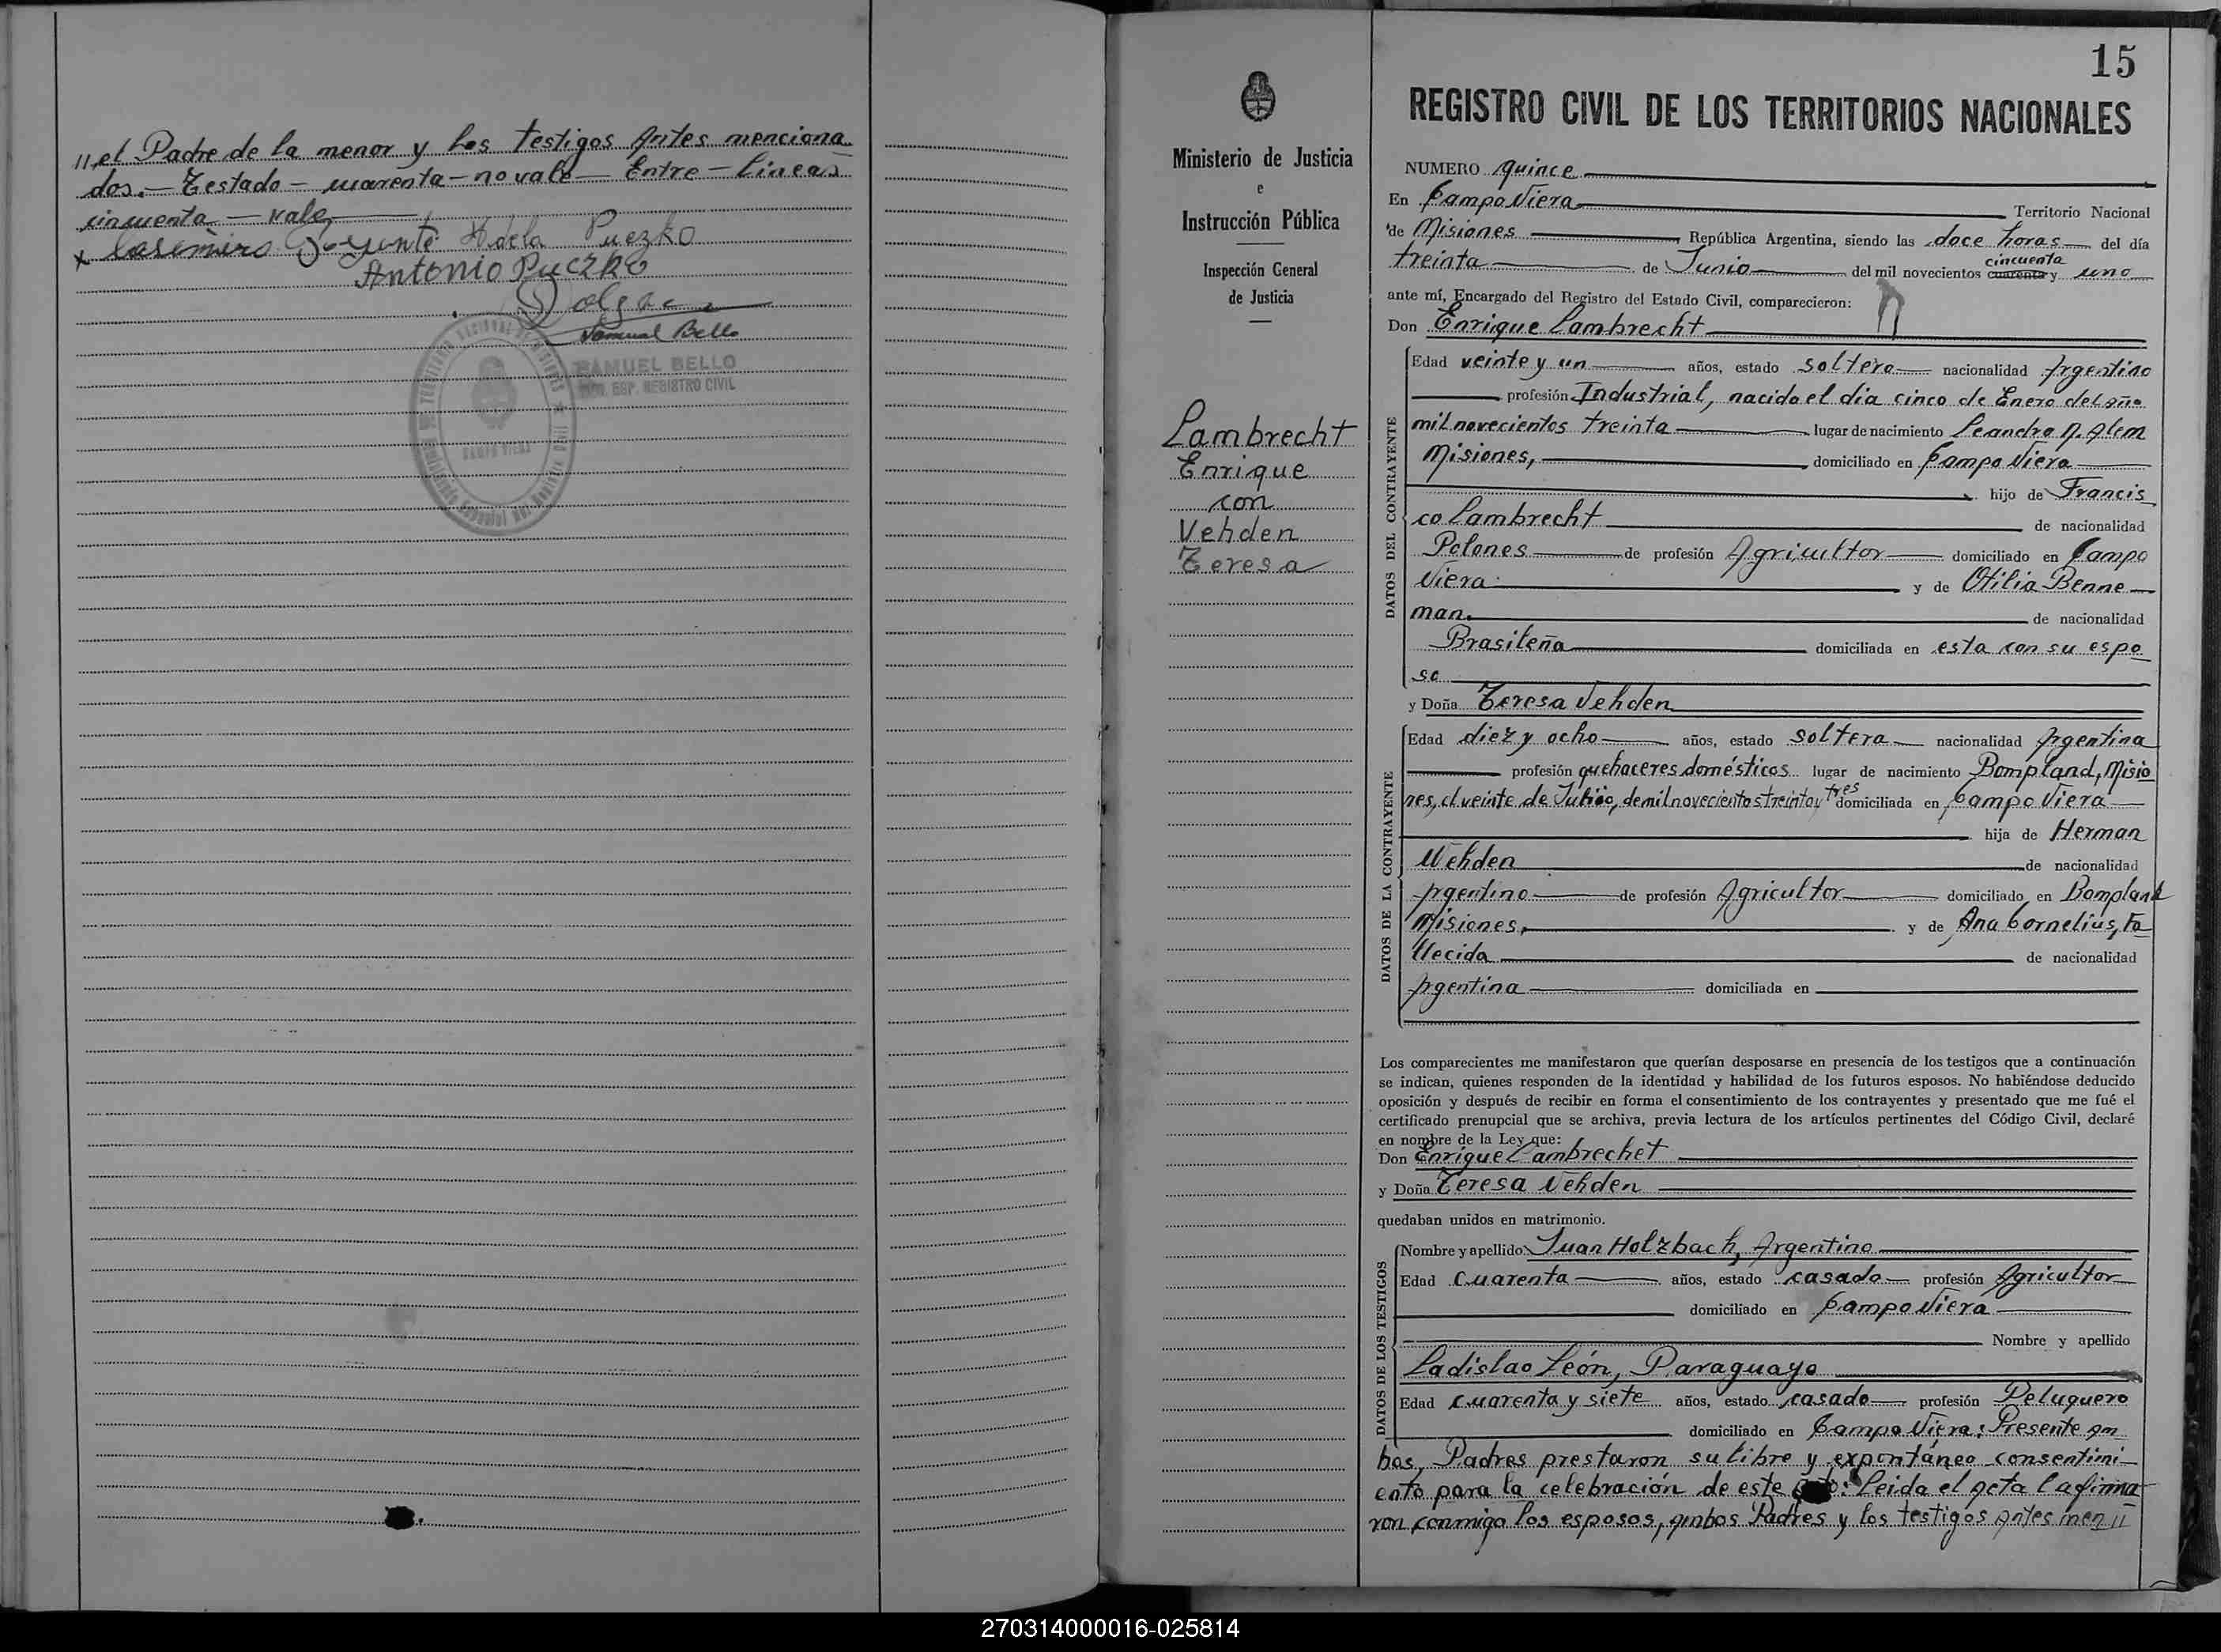 // el Padre de la menor y los testigos Antes menciona
dos.- Testado - cuarenta - no vale - Entre - lineas
cincuenta - vale
x Casimiro Adela Puczko
Antonio Puczko
Samuel Bello
SAMUEL BELLO
ESP. REGISTRO CIVIL
CAMPO VIERA
15
Ministerio de Justicia
e
Instrucción Pública
Inspección General
de Justicia
Lambrecht
Enrique
con
Vehden
Teresa
REGISTRO CIVIL DE LOS TERRITORIOS NACIONALES
NUMERO quince
En Campo Viera Territorio Nacional
de Misiones República Argentina, siendo las doce horas del día
cincuenta
treinta de Junio del mil novecientos cuarenta y uno
ante mí, Encargado del Registro del Estado Civil, comparecieron:
Don Enrique Lambrecht
DATOS DEL CONTRAYENTE
Edad veinte y un años, estado soltero nacionalidad Argentino
profesión Industrial, nacido el dia cinco de Enero del año
mil novecientos treinta lugar de nacimiento Leandro N. Alem
Misiones, domiciliado en Campo Viera
hijo de Francis
co Lambrecht de nacionalidad
Polones de profesión Agricultor domiciliado en Campo
Viera y de Otilia Benne
man. de nacionalidad
Brasileña domiciliada en esta con su espo
so
y Doña Teresa Vehden
DATOS DE LA CONTRAYENTE
Edad diez y ocho años, estado soltera nacionalidad Argentina
profesión quehaceres domésticos lugar de nacimiento Bompland, Misio
nes, el veinte de de mil novecientos treinta y tres domiciliada en Campo Viera
hija de Herman
Vehden de nacionalidad
Argentino de profesión Agricultor domiciliado en Bompland
Misiones, y de Ana Cornelius, Fa
llecida de nacionalidad
Argentina domiciliada en
Los comparecientes me manifestaron que querían desposarse en presencia de los testigos que a continuación
se indican, quienes responden de la identidad y habilidad de los futuros esposos. No habiéndose deducido
oposición y después de recibir en forma el consentimiento de los contrayentes y presentado que me fué el
certificado prenupcial que se archiva, previa lectura de los artículos pertinentes del Código Civil, declaré
en nombre de la Ley que:
Don Enrique Lambrechet
y Doña Teresa Vehden
quedaban unidos en matrimonio.
DATOS DE LOS TESTIGOS
Nombre y apellido Juan Holzbach, Argentino
Edad cuarenta años, estado casado profesión Agricultor
domiciliado en Campo Viera
Nombre y apellido
Ladislao León, Paraguayo
Edad cuarenta y siete años, estado casado profesión Peluquero
domiciliado en Campo Viera: Presente am
bos, Padres prestaron su libre y expontáneo consentimi
ento para la celebración de este : Leida el acta la firma
ron conmigo los esposos, ambos Padres y los testigos antes men //
270314000016-025814